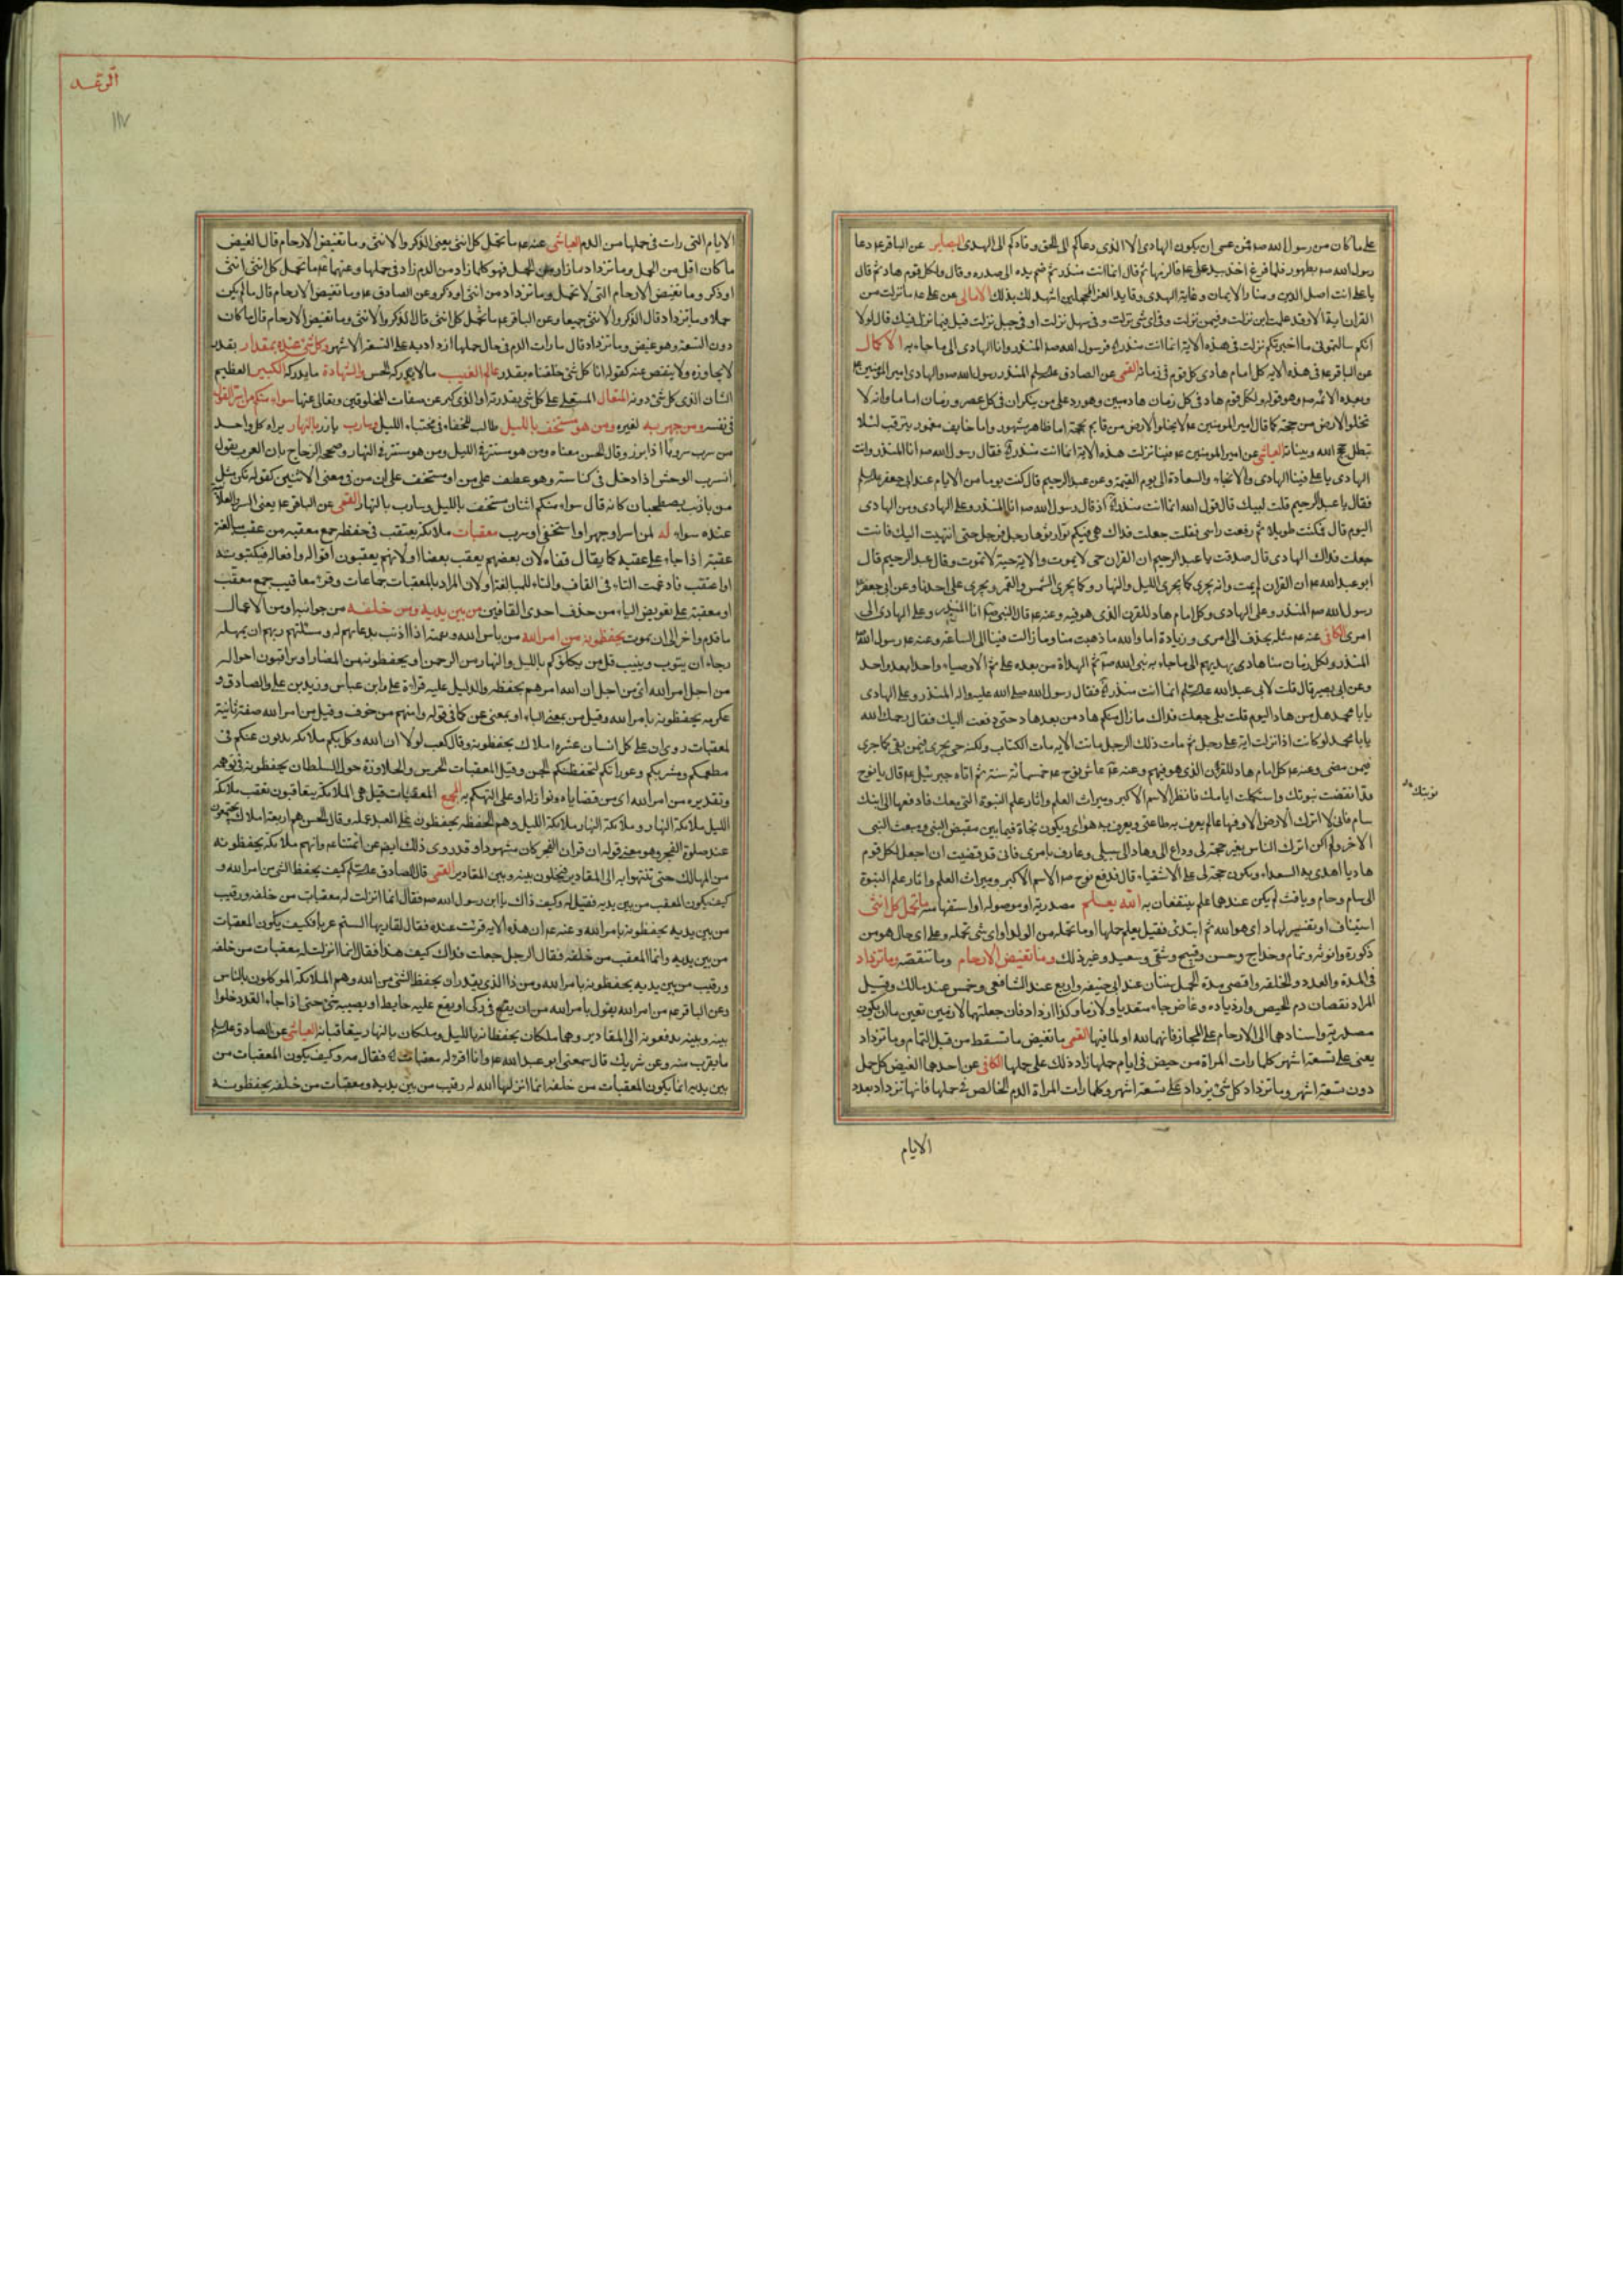 على ما كان من رسول الله صم فمن عسى ان يكون الهادى الا الذى دعاكم الى الحق وقادكم الى الهدى البصاير عن الباقر عم دعا
رسول الله صم بطهور فلما فرغ اخذ بيد على عم فالزمها ثم قال انما انت منذر ثم ضم يده الى صدره وقال ولكل قوم هاد ثم قال
يا على انت اصل الدين ومنار الايمان وغاية الهدى وقايد الغر المحجلين اشهد لك بذلك الامالى عن على عم ما نزلت من
القران اية الا وقد علمت اين نزلت وفيمن نزلت وفى اى شئ نزلت وفى سهل نزلت او فى جبل نزلت قيل فما نزل فيك قال لولا
انكم سالتمونى ما اخبرتكم نزلت فى هذه الاية انما انت منذر فرسول الله صم المنذر وانا الهادى الى ما جاء به الاكمال
عن الباقر عم فى هذه الايه كل امام هادى كل قوم فى زمانه القمى عن الصادق المنذر رسول الله صم والهادى امير المؤمنين عم
وبعده الائمة وهو قوله ولكل قوم هاد فى كل زمان هاد مبين وهو رد على من ينكر ان فى كل عصر وزمان اماما وانه لا
تخلو الارض من حجة كما قال امير المومنين عم لا يخلو الارض من قايم بحجة اما ظاهر مشهور واما خايف مغمور يترقب لئلا
تبطل حجج الله وبيناته العياشى عن امير المومنين عم فينا نزلت هذه الاية انما انت منذر فقال رسول الله صم انا المنذر وانت
الهادى يا على فمنا الهادى والسعادة الى يوم القيمة وعن عبد الرحيم قال كنت يوما من الايام عند ابى جعفر
فقال يا عبد الرحيم قلت لبيك قال قول الله انما انت منذر اذ قال رسول الله صم انا المنذر وعلى الهادى ومن الهادى
اليوم قال فمكثت طويلا ثم رفعت راسى فقلت جعلت فداك هى فيكم توارثوها رجل فرجل حتى انتهيت اليك فانت
جعلت فداك الهادى قال صدقت يا عبد الرحيم ان القران حى لا يموت والاية حية لا تموت وقال عبد الرحيم قال
ابو عبد الله عم ان القران لم يمت وانه يجرى كما يجرى الليل والنهار وكما يجرى الشمس والقمر ويجرى على اخرنا وعن ابى جعفر
رسول الله صم المنذر وعلى الهادى وكل امام هاد للقرن الذى هو فيه وعنه عم قال النبى انا المنذر وعلى الهادى الى
امرى الكافى عنه عم مثله بحذف الى امرى وزيادة اما والله ما ذهبت منا وما زالت فينا الى الساعة وعنه عم رسول الله
المنذر ولكل زمان منا هادى يهديهم الى ما جاء به نبى الله ثم الهداة من بعده على ثم الاوصياء واحدا بعد واحد
وعن ابى بصير قال قلت لابى عبد الله انما انت منذر فقال رسول الله صلى الله عليه واله المنذر وعلى الهادى
يا با محمد هل من هاد اليوم قلت بلى جعلت فداك ما زال منكم هاد من بعد هاد حتى دفعت اليك فقال رحمك الله
يا با محمد لو كانت اذا نزلت اية على رجل ثم مات ذلك الرجل ماتت الايه مات الكتاب ولكنه حى يجرى فيمن بقى كما جرى
فيمن مضى وعنه عم كل امام هاد للقرن الذى هو فيهم وعنه عم عاش نوح عم خمسمائة سنة ثم اتاه جبرئيل عم قال يا نوح
قد انقضت نبوتك واستكملت ايامك فانظر الاسم الاكبر وميراث العلم واثار علم النبوة التى معك فادفعها الى ابنك
سام فانى لا اترك الارض الا وفيها عالم يعرف به طاعتى ويعرف به هواى ويكون نجاة فيما بين مقبض النبى ومبعث النبى
الاخر ولم اكن اترك الناس بغير حجة لى وداع الى وهاد الى سبيلى وعارف بامرى فانى قد قضيت ان اجعل لكل قوم
هاديا اهدى به السعداء ويكون حجة لى على الاشقياء قال فدفع نوح الاسم الاكبر وميراث العلم واثار علم النبوة
الى سام وحام ويافث لم يكن عندهما علم ينتفعان به الله يعلم مصدرية او موصولة او استفهامية ما تحمل كل انثى
استيناف او تفسير لهاد اى هو الله ثم ابتدئ فقيل يعلم حملها او ما تحمله من الولد او اى شئ تحمله وعلى اى حال هو من
ذكورة وانوثة وتمام وخداج وحسن وقبيح وشقى وسعيد وغير ذلك وما تغيض الارحام وما تنقصه وما تزداد
فى المدة والعدد والخلقه واقصى مدة الحمل سنتان عند ابى حنيفه واربع عند الشافعى وخمس عند مالك وقيل
المراد نقصان دم الحيض وازدياده وغاض جاء متعديا ولازما وكذا ازداد فان جعلتهما لازمين تعين ما ان يكون
مصدرية واسنادهما الى الارحام على المجاز فانهما لله او لما فيها القمى ما تغيض ما تسقط من قبل التمام وما تزداد
يعنى على تسعة اشهر كلما رات المراة من حيض فى ايام حملها زاد ذلك على حملها الكافى عن احدهما الغيض كل حمل
دون تسعة اشهر وما تزداد كل شئ يزداد على تسعة اشهر وكلما رات المراة الدم الخالص فى حملها فانها تزداد بعدد
نوبتك
الايام
الرعد
١١٧
الايام التى رات فى حملها من الدم العياشى عنه عم ما تحمل كل انثى يعنى الذكر والانثى وما تغيض الارحام قال الغيض
ما كان اقل من الحمل وما تزداد ما زاد على الحمل فهو كلما زاد من الدم زاد فى حملها وعنهما عم ما تحمل كل انثى انثى
او ذكر وما تغيض الارحام التى لا تحمل وما تزداد من انثى او ذكر وعن الصادق عم وما تغيض الارحام قال ما لم يكن
حملا وما تزداد قال الذكر والانثى جميعا وعن الباقر عم ما تحمل كل انثى قال الذكر والانثى وما تغيض الارحام قال ما كان
دون التسعة وهو غيض وما تزداد قال ما رات الدم فى حال حملها ازداد به على التسعة الاشهر وكل شئ عنده بمقدار بقدر
لا يجاوزه ولا ينقص عنه كقوله انا كل شئ خلقناه بقدر عالم الغيب ما لا يدركه الحس والشهادة ما يدركه الكبير العظيم
الشان الذى كل شئ دونه المتعال المستعلى على كل شئ بقدرته او الذى كبر عن صفات المخلوقين وتعالى عنها سواء منكم من اسر القول
فى نفسه ومن جهر به لغيره ومن هو مستخف بالليل طالب للخفاء فى مختباء الليل وسارب بارز بالنهار يراه كل واحد
من سرب سروبا اذا برز وقال الحسن معناه ومن هو مستتر فى الليل ومن هو مستتر فى النهار وصححه الزجاج بان العرب يقول
انسرب الوحش اذا دخل فى كناسته وهو عطف على من او مستخف على ان من فى معنى الاثنين كقوله نكن مثل
من ياذئب يصطحبان كانه قال سواء منكم اثنان مستخف بالليل وسارب بالنهار القمى عن الباقر عم يعنى السر والعلانية
عنده سواء له لمن اسر او جهر او استخفى او سرب معقبات ملائكة يعتقب فى حفظه جمع معقبه من عقب مبالغة
عقبه اذا جاء على عقبه كما يقال قفاه لان بعضهم يعقب بعضا او لانهم يعقبون اقواله وافعاله فيكتبونه
او اعتقب فادغمت التاء فى القاف والتاء للمبالغة او لان المراد بالمعقبات جماعات وقرئ معاقيب جمع معقب
او معقبة على تعويض الياء من حذف احدى القافين من بين يديه ومن خلفه من جوانبه او من الاعمال
ما قدم واخر الى ان يموت يحفظونه من امر الله من باس الله ونقمته اذا اذنب بدعائهم له ومسئلتهم ربهم ان يمهله
رجاء ان يتوب وينيب قل من يكلؤكم بالليل والنهار من الرحمن او يحفظونه من المضار او يراقبون احواله
من اجل امر الله اى من اجل ان الله امرهم بحفظه والدليل عليه قراءة على وابن عباس وزيد بن على والصادق و
عكرمه يحفظونه بامر الله وقيل من بمعنى الباء او بمعنى عن كما فى قوله وامنهم من خوف وقيل من امر الله صفة ثانية
لمعقبات روى ان على كل انسان عشرة املاك يحفظونه وقال كعب لولا ان الله وكل بكم ملائكه يذبون عنكم فى
مطعمكم ومشربكم وعوراتكم لتخطفنكم الجن وقيل المعقبات الحرس والجلاوزة حول السلطان يحفظونه فى توهمه
وتقديره من امر الله اى من قضاياه ونوازله او على التهكم به المجمع المعقبات قيل هى الملائكة يتعاقبون تعقب ملائكة
الليل ملائكة النهار وملائكة النهار ملائكة الليل وهم الحفظه يحفظون على العبد عمله وقال الحسن هم اربعة املاك يجتمعون
عند صلوة الفجر وهو معنى قوله ان قران الفجر كان مشهودا وقد روى ذلك ايضا عن ائمتنا عم وانهم ملائكه يحفظونه
من المهالك حتى تنتهوا به الى المقادير فيخلون بينه وبين المقادير القمى قال الصادق كيف يحفظ الشئ من امر الله و
كيف يكون المعقب من بين يديه فقيل له وكيف ذاك يا ابن رسول الله صم فقال انما انزلت له معقبات من خلفه ورقيب
من بين يديه يحفظونه بامر الله وعنه عم ان هذه الايه قرئت عنده فقال لقاريها الستم عربا فكيف يكون المعقبات
من بين يديه وانما المعقب من خلفه فقال الرجل جعلت فداك كيف هذا فقال انما انزلت له معقبات من خلفه
ورقيب من بين يديه يحفظونه بامر الله ومن ذا الذى يقدر ان يحفظ الشئ من الله وهم الملائكة الموكلون بالناس
وعن الباقر عم من امر الله يقول بامر الله من ان يقع فى ركى او يقع عليه حايط او يصيبه شئ حتى اذا جاء القدر خلوا
بينه وبينه يدفعونه الى المقادير وهما ملكان يحفظانه بالليل وملكان بالنهار يتعاقبانه العياشى عن الصادق
ما يقرب منه وعن شريك قال سمعنى ابو عبد الله عم وانا اقرء له معقبات فقال مه وكيف يكون المعقبات من
بين يديه انما يكون المعقبات من خلفه انما انزلها الله له رقيب من بين يديه ومعقبات من خلفه يحفظونه